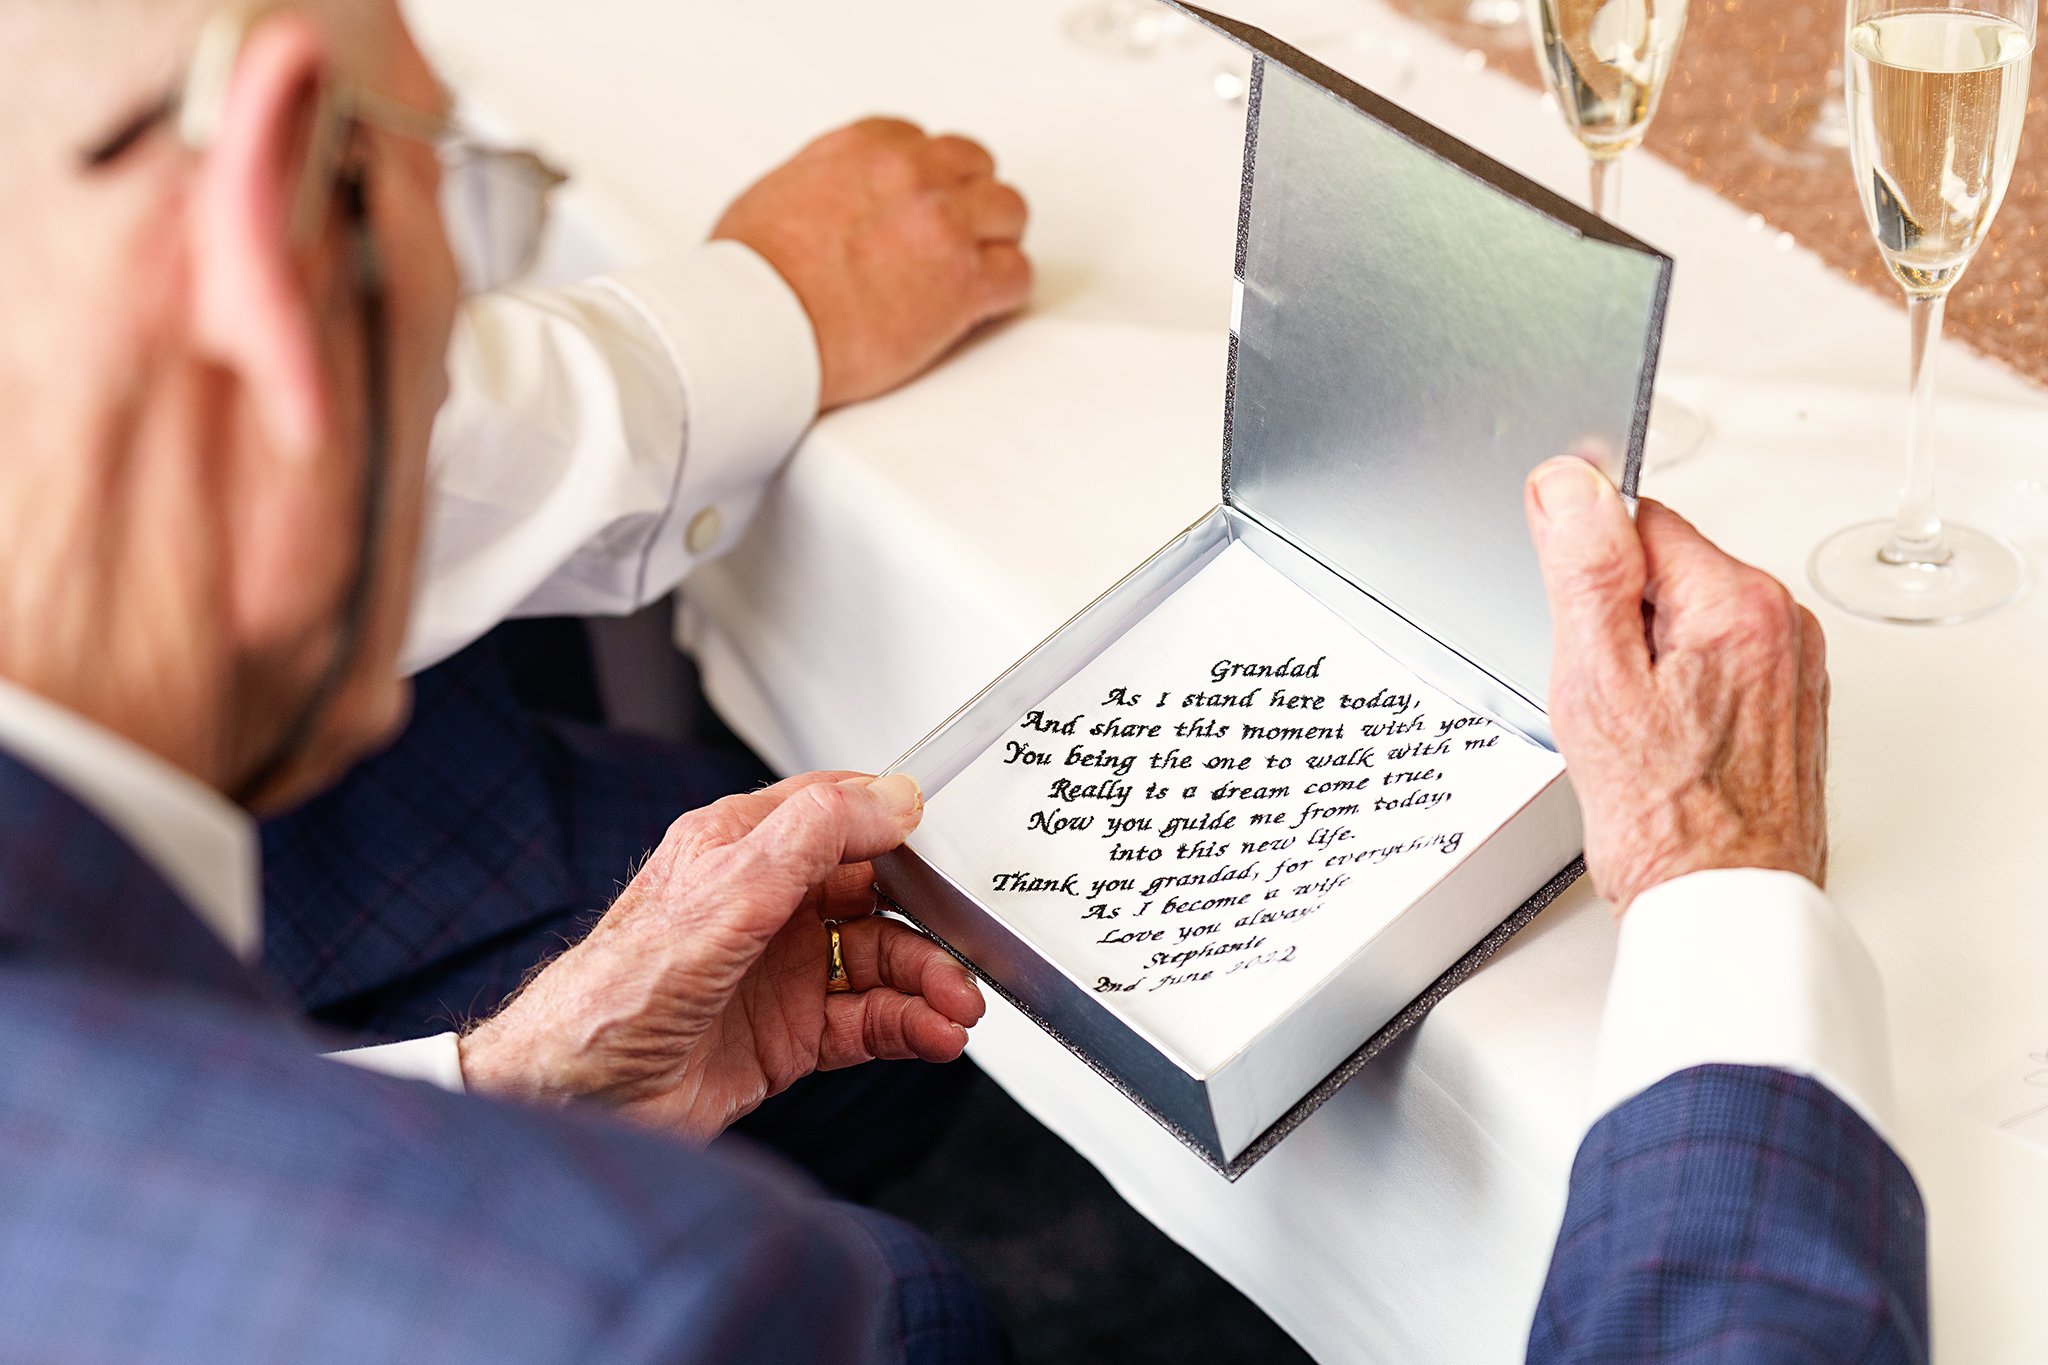 Grandad
As I stand here today,
And share this moment with you,
You being the one to walk with me
Really is a dream come true,
Now you guide me from today,
into this new life.
Thank you grandad, for everything
As I become a wife
Love you always
Stephanie
2nd June 2022